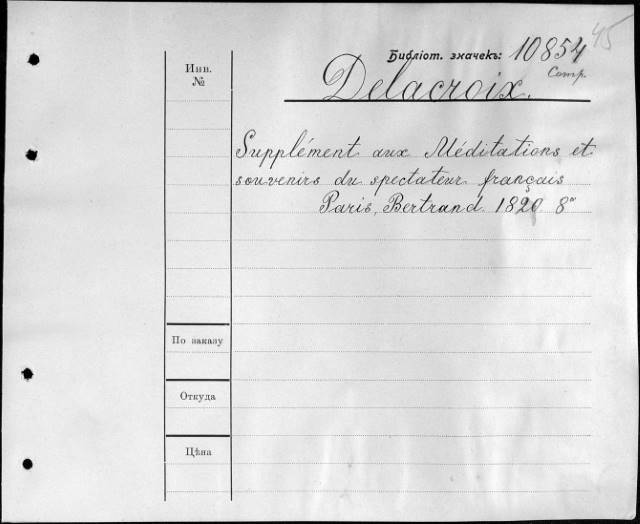 45
Библіот. значекъ: 10854
Comp.
Инв.
№
Delacroix.
Supplément aux Méditations et
souvenirs du spectateur français
Paris, Bertrand. 1820 8°
По заказу
Откуда
Цѣна